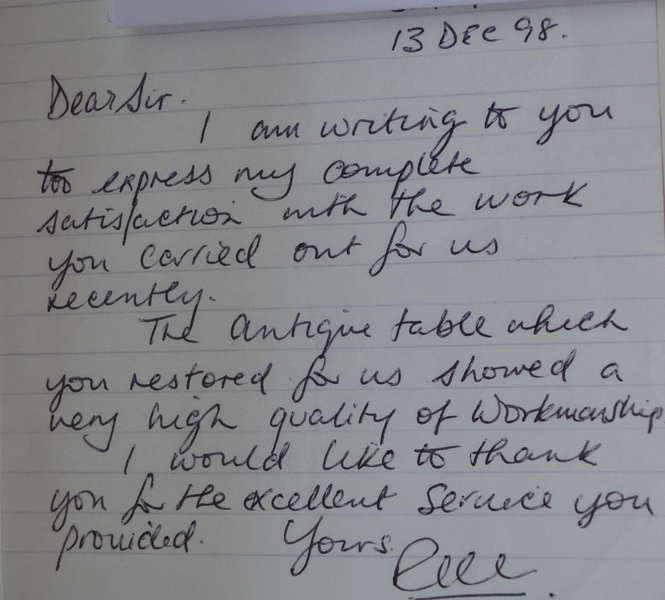 13 DEC 98.
Dear Sir.
I am writing to you
too express my complete
satisfaction with the work
you carried out for us
recently.
The antique table which
you restored for us showed a
very high quality of workmanship
I would like to thank
you for the excellent service you
provided. Yours.